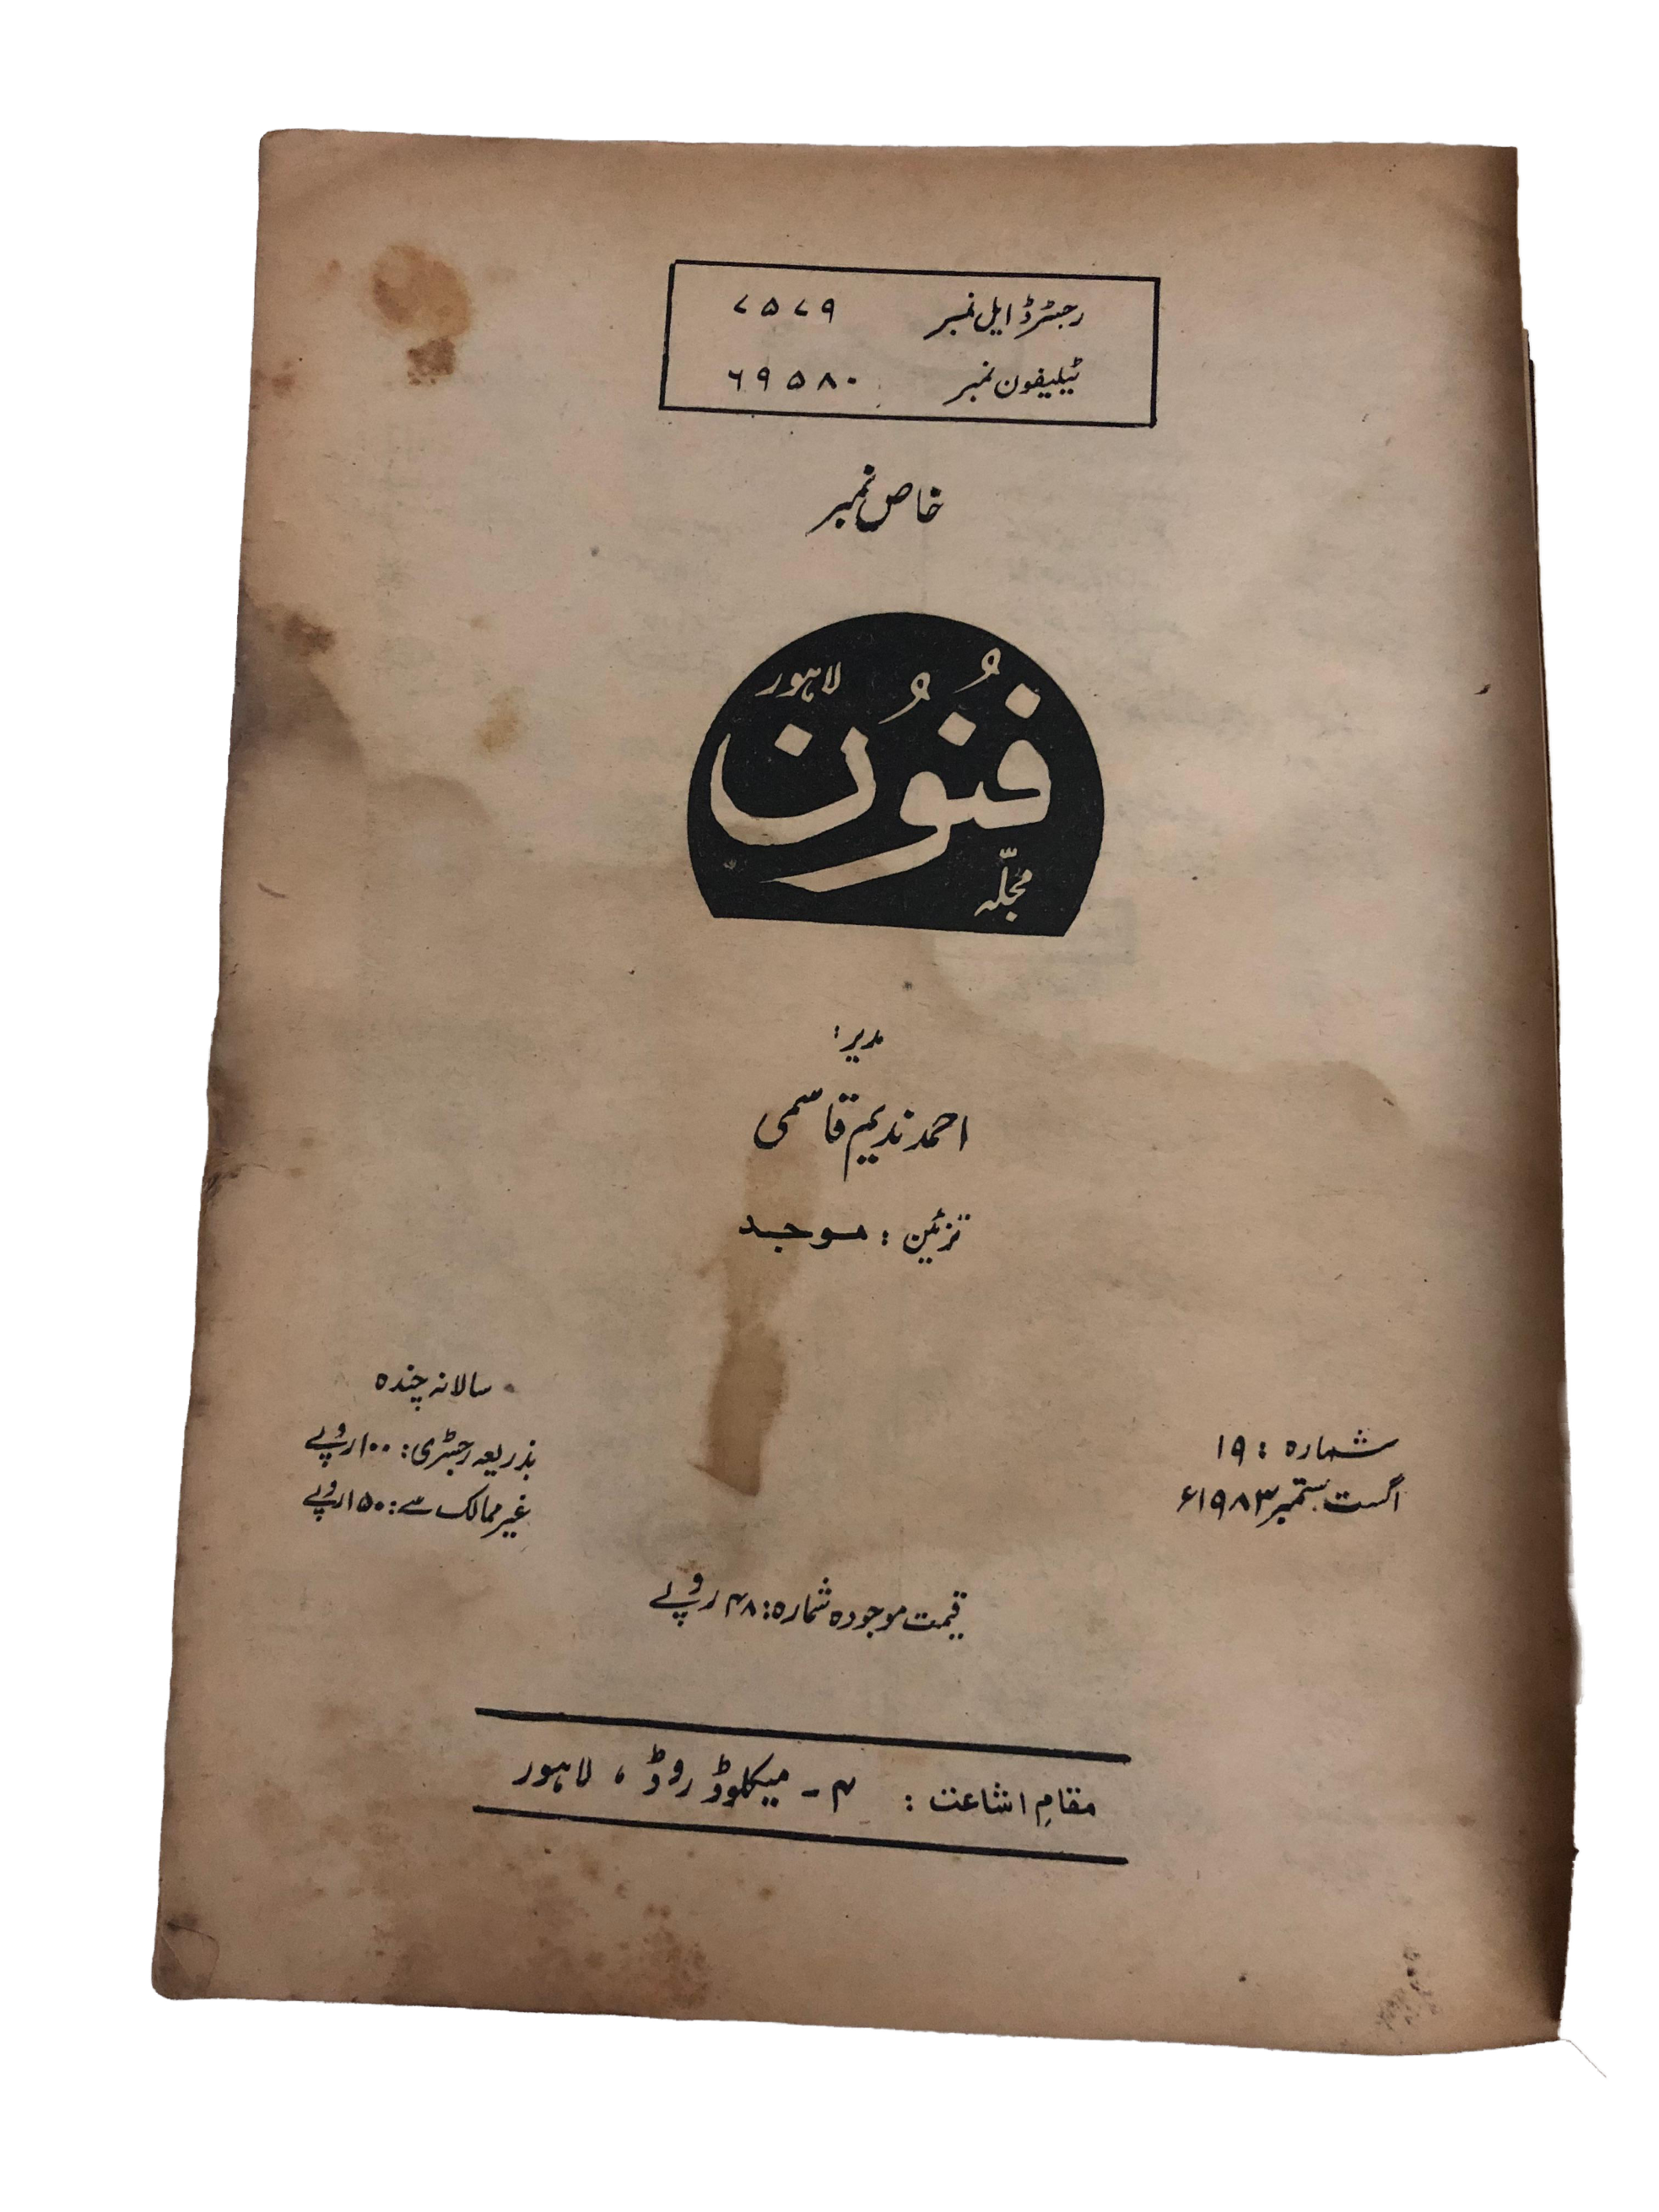 رجسٹرڈ ایل نمبر ۷۵۷۹
ٹیلیفون نمبر ۶۹۵۸۰
خاص نمبر
لاہور
فُنُوُن
مجلّہ
مدیر:
احمد ندیم قاسمی
تزئین: موجد
شمارہ: ۱۹
اگست ستمبر ۱۹۸۳ء
سالانہ چندہ
بذریعہ رجسٹری: ۱۰۰ روپے
غیر ممالک سے: ۱۵۰ روپے
قیمت موجودہ شمارہ: ۴۸ روپے
مقامِ اشاعت: ۴ ـ میکلوڈ روڈ، لاہور